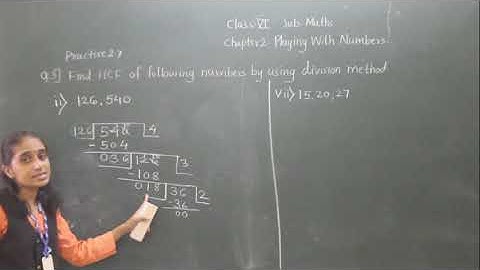 Class:VI Sub:Maths
Chapter2 Playing With Numbers
Practice 2.7
Q.3] Find HCF of following numbers by using division method
ii) 126,540
126 540 4
-504
036 126 3
-108
018 36 2
-36
00
vii) 15,20,27